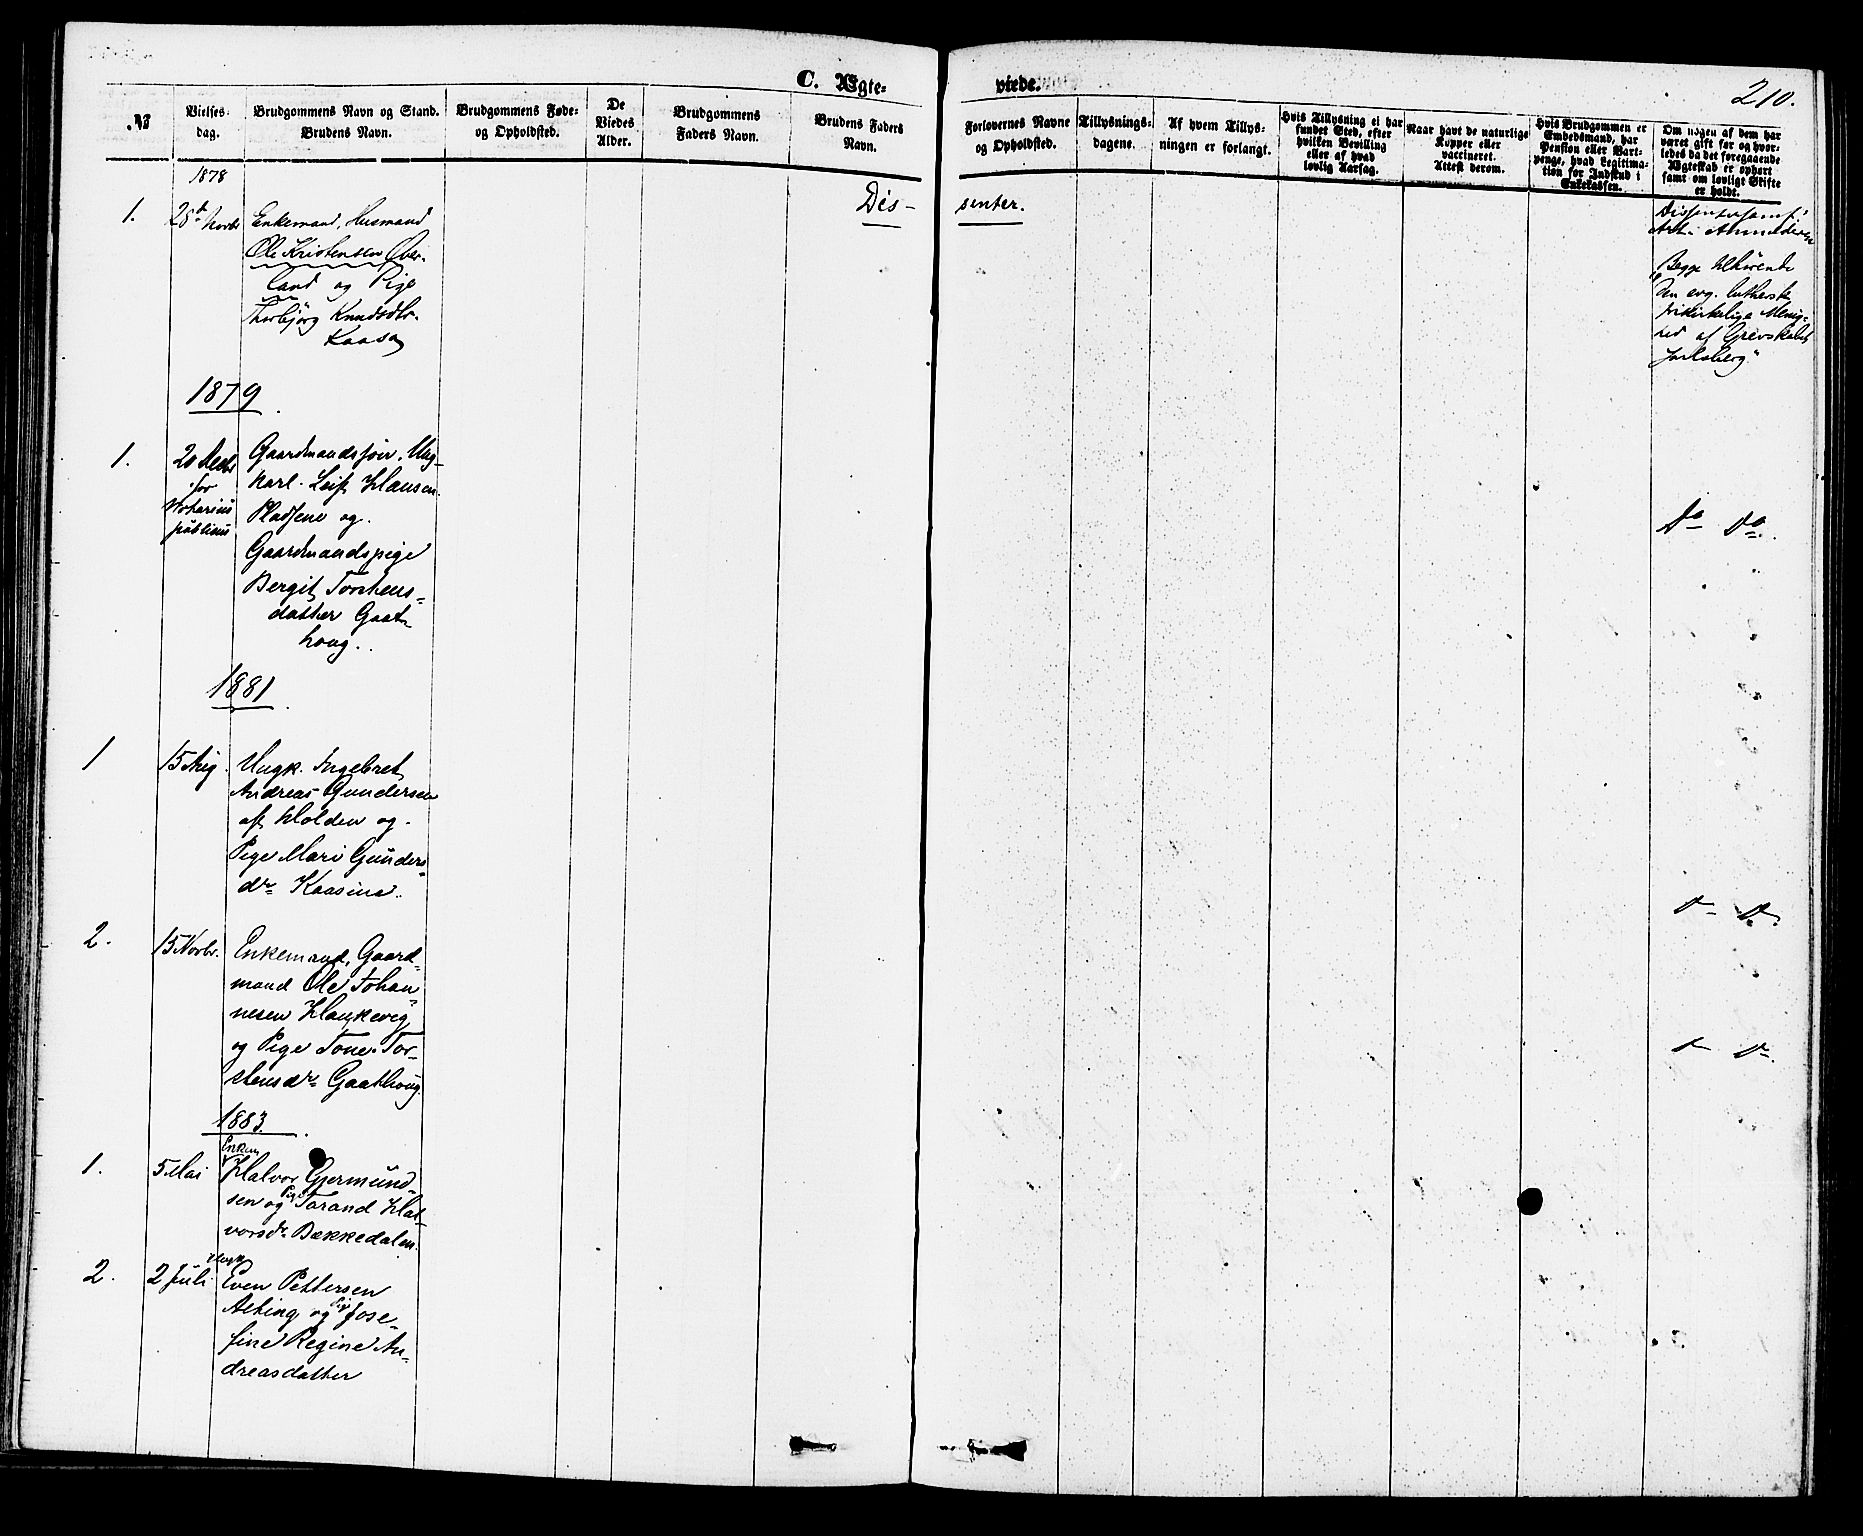 C. Ægte=
viede.
210.
№
Vielses-
dag.
Brudgommens Navn og Stand.
Brudens Navn.
Brudgommens Føde-
og Opholdsted.
De
Viedes
Alder.
Brudgommens
Faders Navn.
Brudens Faders
Navn.
Forlovernes Navne
og Opholdsted.
Tillysnings-
dagene.
Af hvem Tillys-
ningen er forlangt.
Hvis Tillysning ei har
fundet Sted, efter
hvilken Bevilling
eller af hvad
lovlig Aarsag.
Naar havt de naturlige
Kopper eller
vaccineret.
Attest derom.
Hvis Brudgommen er
Embedsmand, har
Pension eller Vart-
penge, hvad Legitima-
tion for Indskud i
Enkekassen.
Om nogen af dem har
været gift før og hvor-
ledes da det foregaaende
Ægteskab er ophørt
samt om lovligt Skifte
er holdt.
Dis-
senter.
1878
1.
28de Novbr
Enkemand, Husmand
Ole Kristensen Over-
land og Pige
Thorbjörg Knudsdtr.
Kaasa
Begge tilhørende
"Den evg. lutherske
frikirkelige Menig-
hed af Grevskabet
Jarlsberg."
1879
1.
20 Decbr
for
Notarius
publicus
Gaardmandssøn, Ung-
karl. Leif Hansen
Pladsene og
Gaardmandspige
Bergit Torstens=
datter Gaat-
houg.
Do Do.
1881
1
15 Aug.
Ungk. Ingebret
Andreas Gundersen
af Holden og
Pige Mari Gunders-
dr Kaasine.
D D
2.
15 Novbr.
Enkemand, Gaard-
mand Ole Johan-
nesen Haukevig
og Pige Tone Tor-
stensdr Gaathoug.
D D
1883.
1.
5 Mai
Enkem
Halvor Gjermund-
sen og Pige Tarand Hal-
vorsdr Bækkedalen.
2.
2 Juli
Ungk
Even Pettersen
Aelting og Pige Jose-
fine Regine An-
dreasdatter